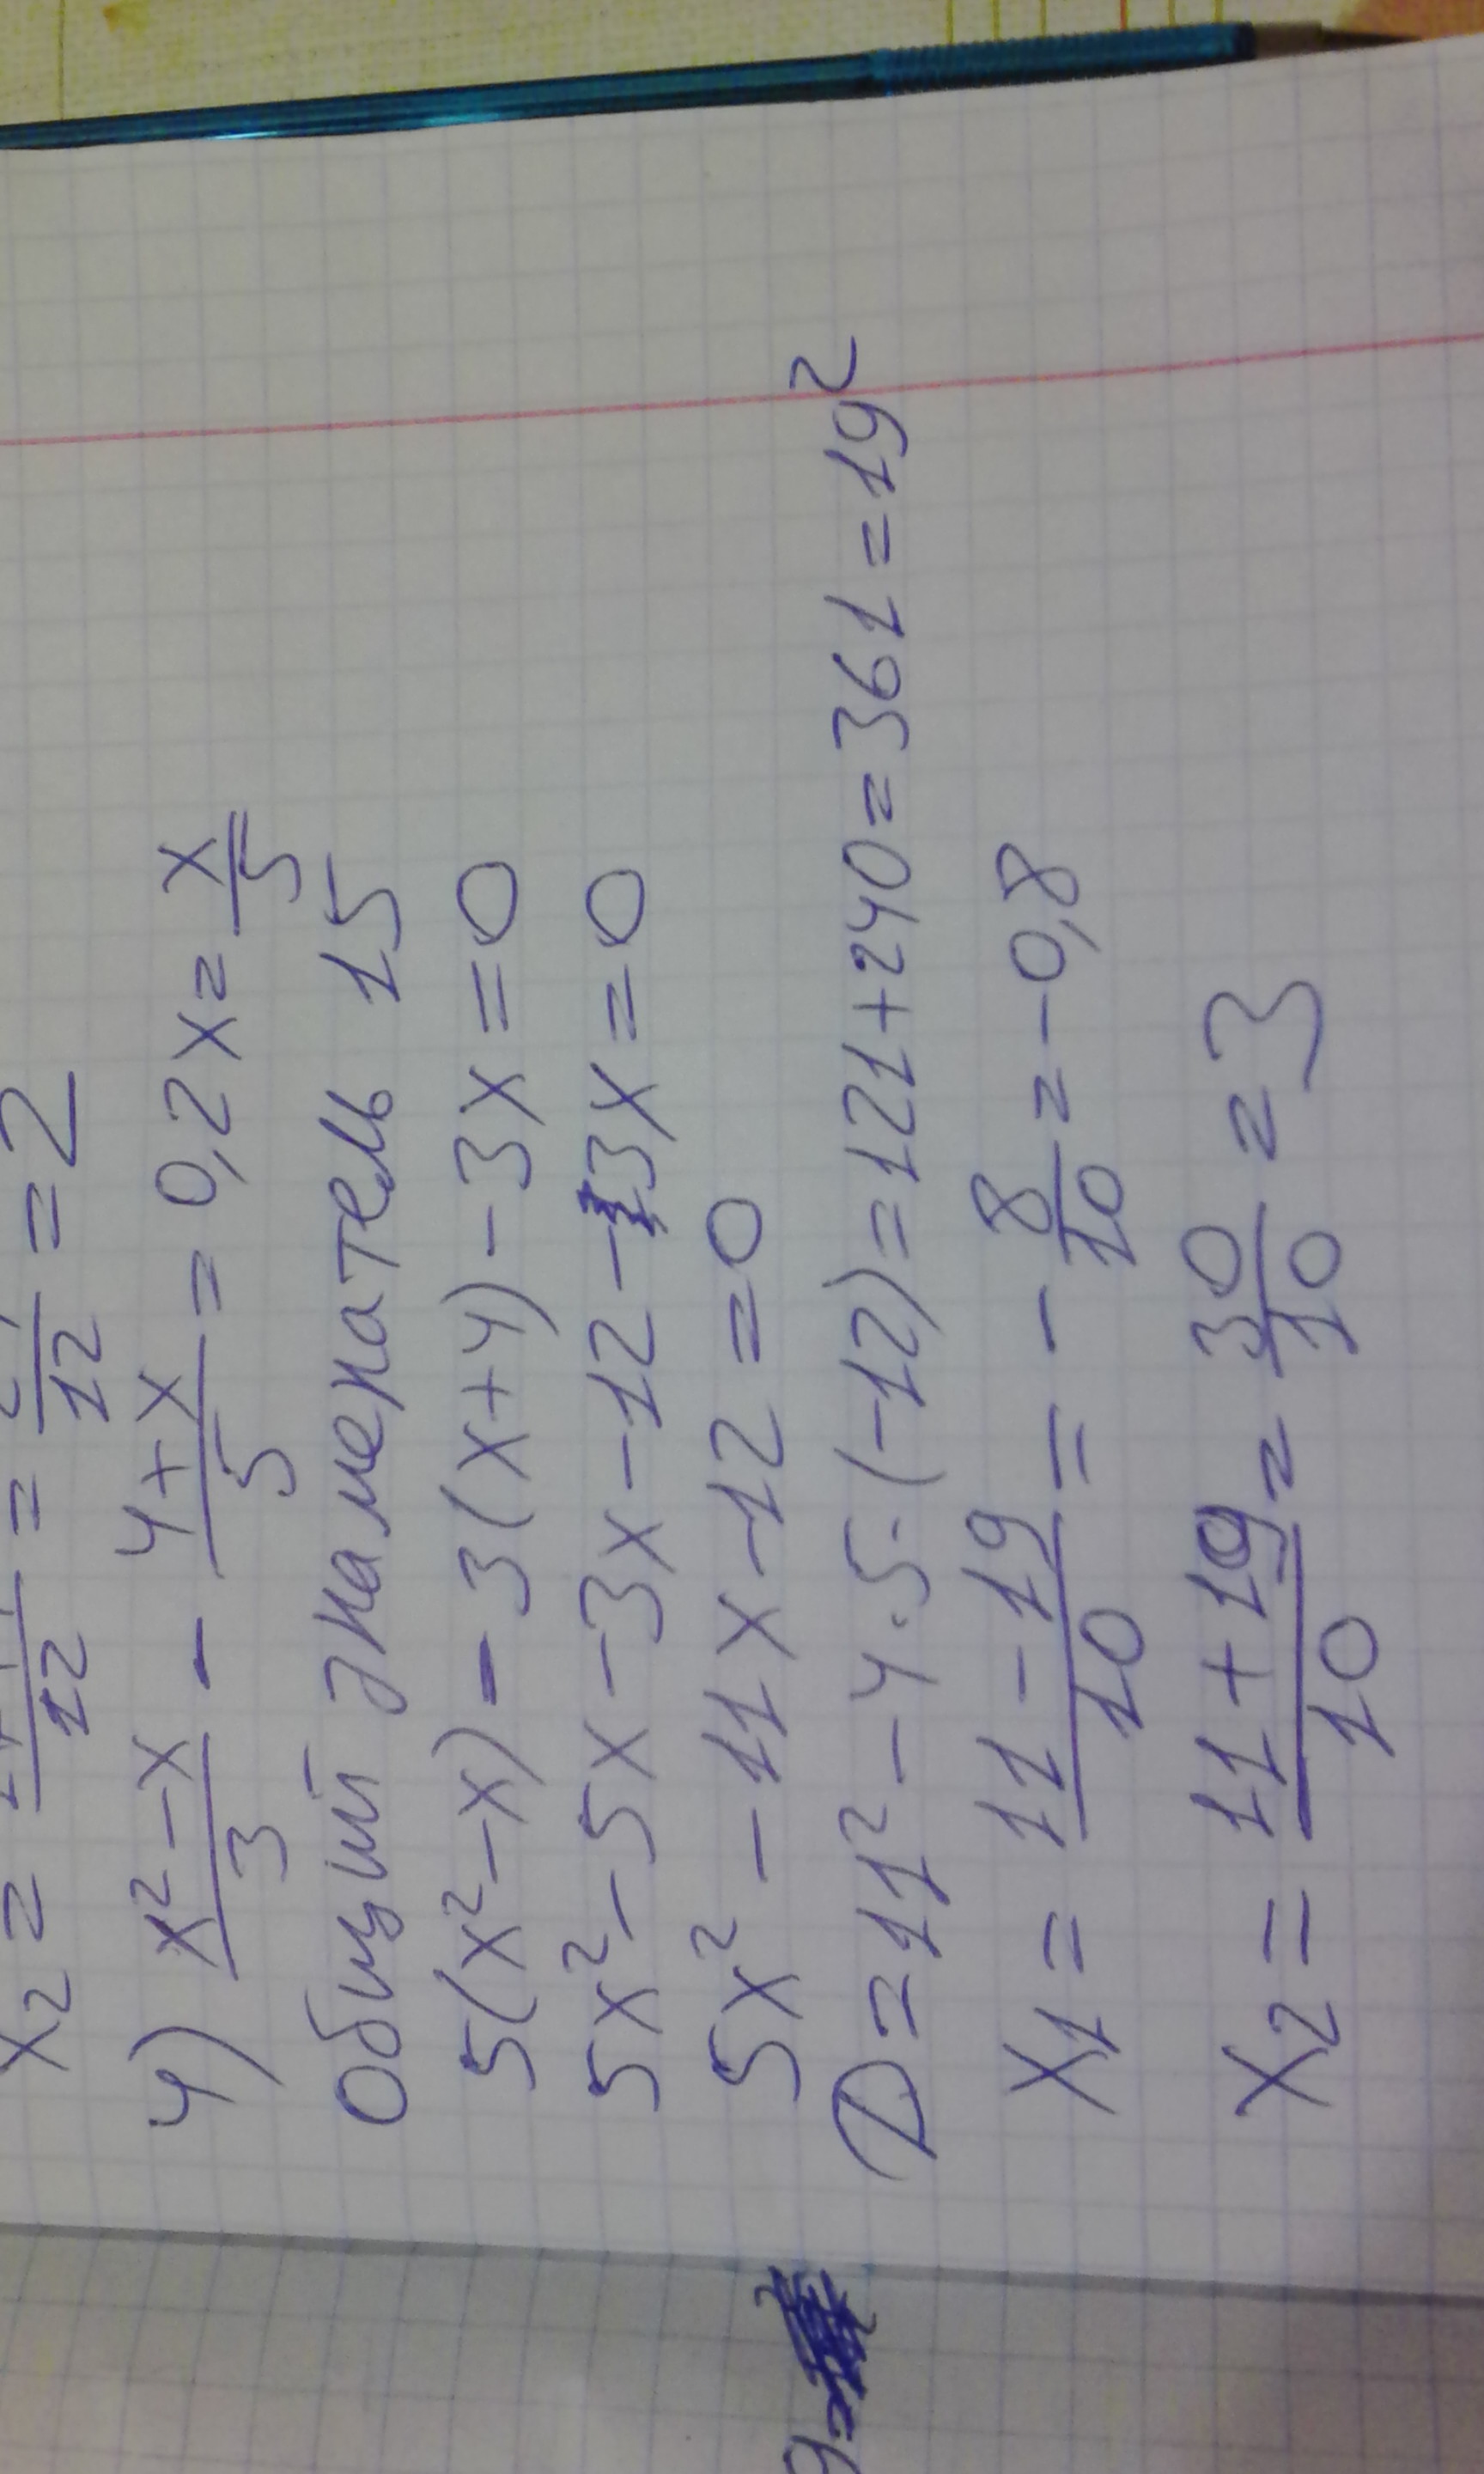 x₂ = = 2
12 12
4) (x² - x)/3 - (4 + x)/5 = 0,2x = x/5
Общий знаменатель 15
5(x² - x) - 3(x + 4) - 3x = 0
5x² - 5x - 3x - 12 - 3x = 0
5x² - 11x - 12 = 0
D = 11² - 4·5·(-12) = 121 + 240 = 361 = 19²
x₁ = (11 - 19)/10 = - 8/10 = -0,8
x₂ = (11 + 19)/10 = 30/10 = 3